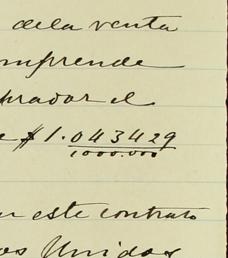 dela venta
mprende
prador el
e $1.043429
1000.000
en este contrato
os Unidos